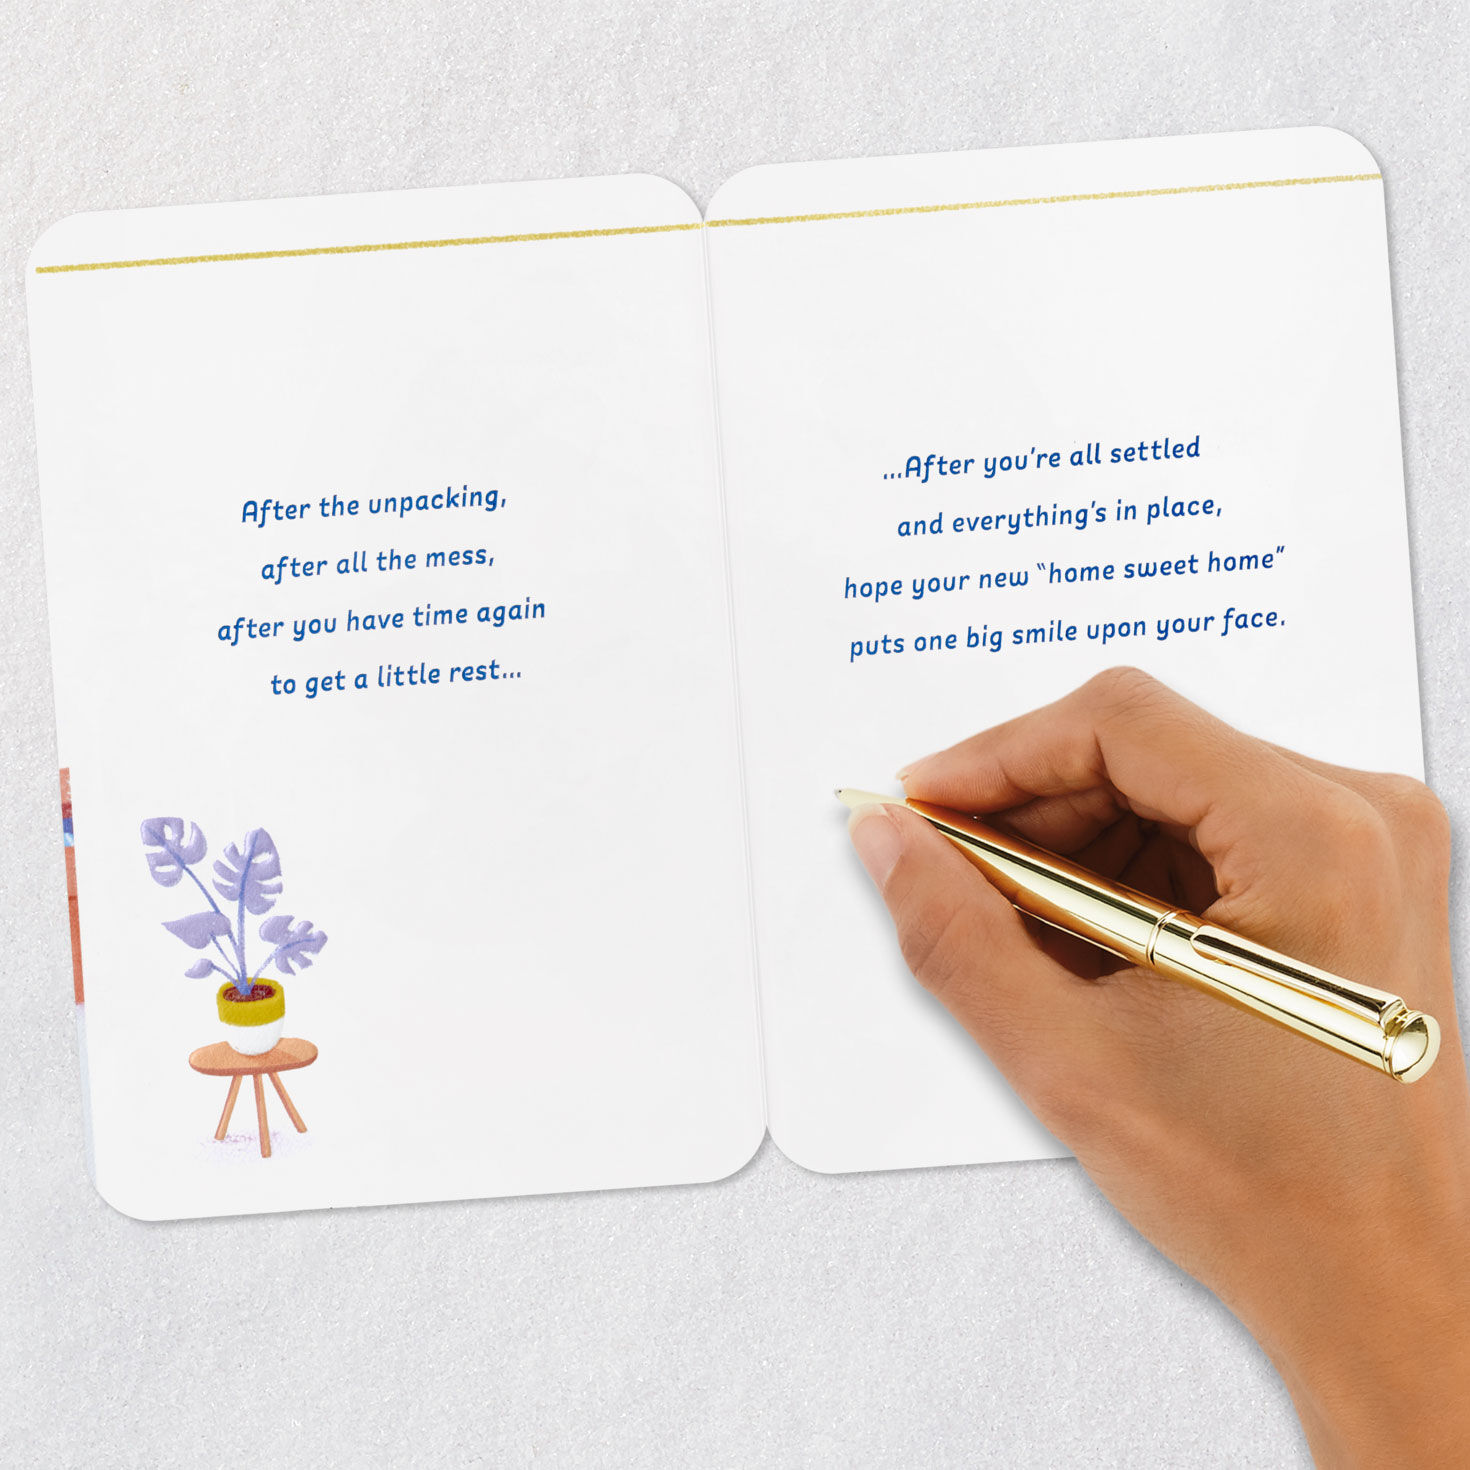 After the unpacking,
after all the mess,
after you have time again
to get a little rest...
...After you're all settled
and everything's in place,
hope your new “home sweet home”
puts one big smile upon your face.